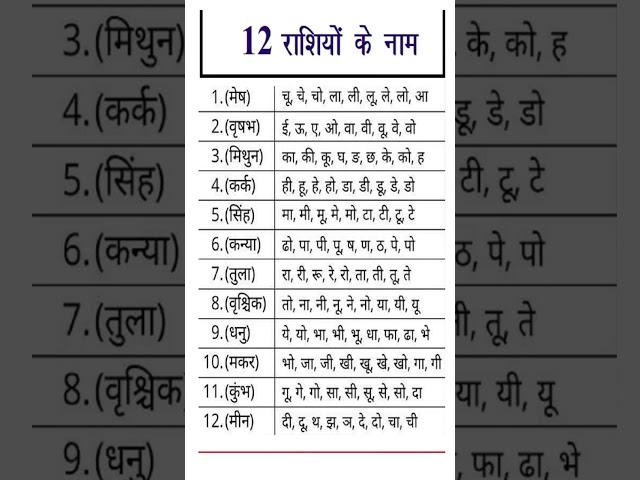 12 राशियों के नाम
1.(मेष) चू, चे, चो, ला, ली, लू, ले, लो, आ
2.(वृषभ) ई, ऊ, ए, ओ, वा, वी, वू, वे, वो
3.(मिथुन) का, की, कू, घ, ङ, छ, के, को, ह
4.(कर्क) ही, हू, हे, हो, डा, डी, डू, डे, डो
5.(सिंह) मा, मी, मू, मे, मो, टा, टी, टू, टे
6.(कन्या) ढो, पा, पी, पू, ष, ण, ठ, पे, पो
7.(तुला) रा, री, रू, रे, रो, ता, ती, तू, ते
8.(वृश्चिक) तो, ना, नी, नू, ने, नो, या, यी, यू
9.(धनु) ये, यो, भा, भी, भू, धा, फा, ढा, भे
10.(मकर) भो, जा, जी, खी, खू, खे, खो, गा, गी
11.(कुंभ) गू, गे, गो, सा, सी, सू, से, सो, दा
12.(मीन) दी, दू, थ, झ, ञ, दे, दो, चा, ची
3.(मिथुन) के, को, ह
4.(कर्क) डू, डे, डो
5.(सिंह) टी, टू, टे
6.(कन्या) ठ, पे, पो
7.(तुला) ती, तू, ते
8.(वृश्चिक या, यी, यू
9.(धनु) फा, ढा, भे